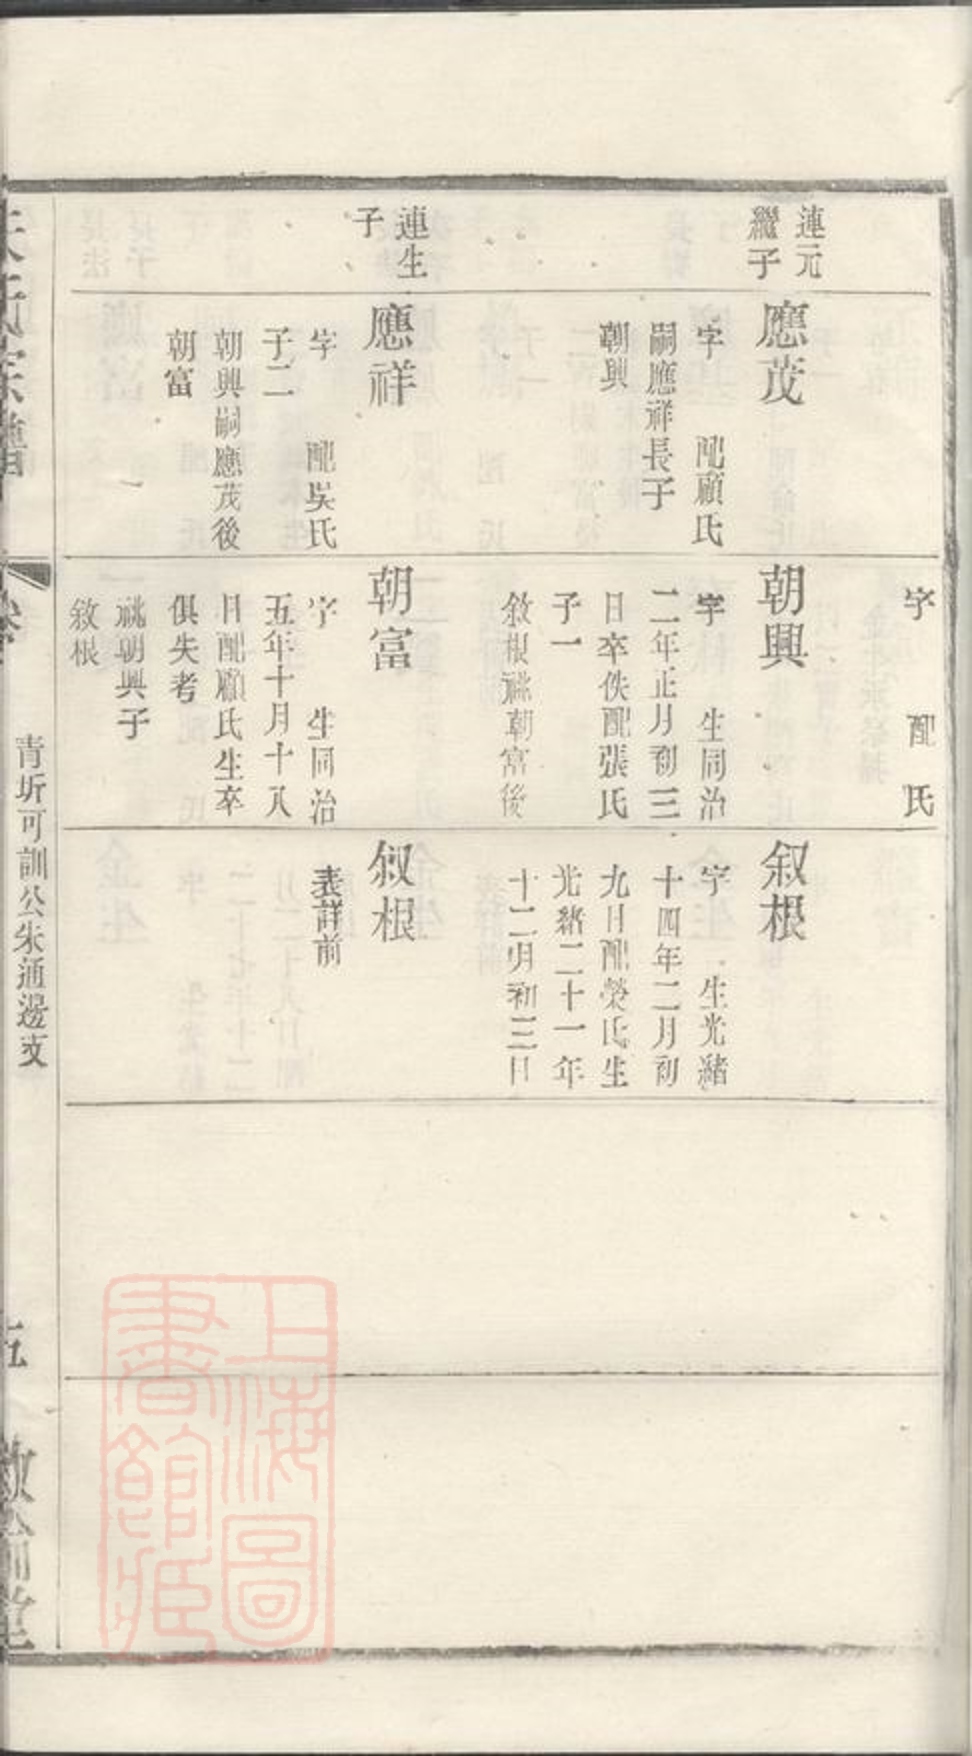 連元
繼子
連生
子
應茂
字　配顧氏
嗣應祥長子
朝興
應祥
字　配吳氏
子二
朝興嗣應茂後
朝富
字　配　氏
朝興
字　生同治
二年正月初三
日卒佚配張氏
子一
敘根祧朝富後
朝富
字　生同治
五年十月十八
日配顧氏生卒
俱失考
祧朝興子
敘根
叙根
字　生光緒
十四年二月初
九日配榮氏生
光緒二十一年
十二月初三日
叙根
表詳前
青圻可訓公朱通邊支
五
上海圖
書館藏